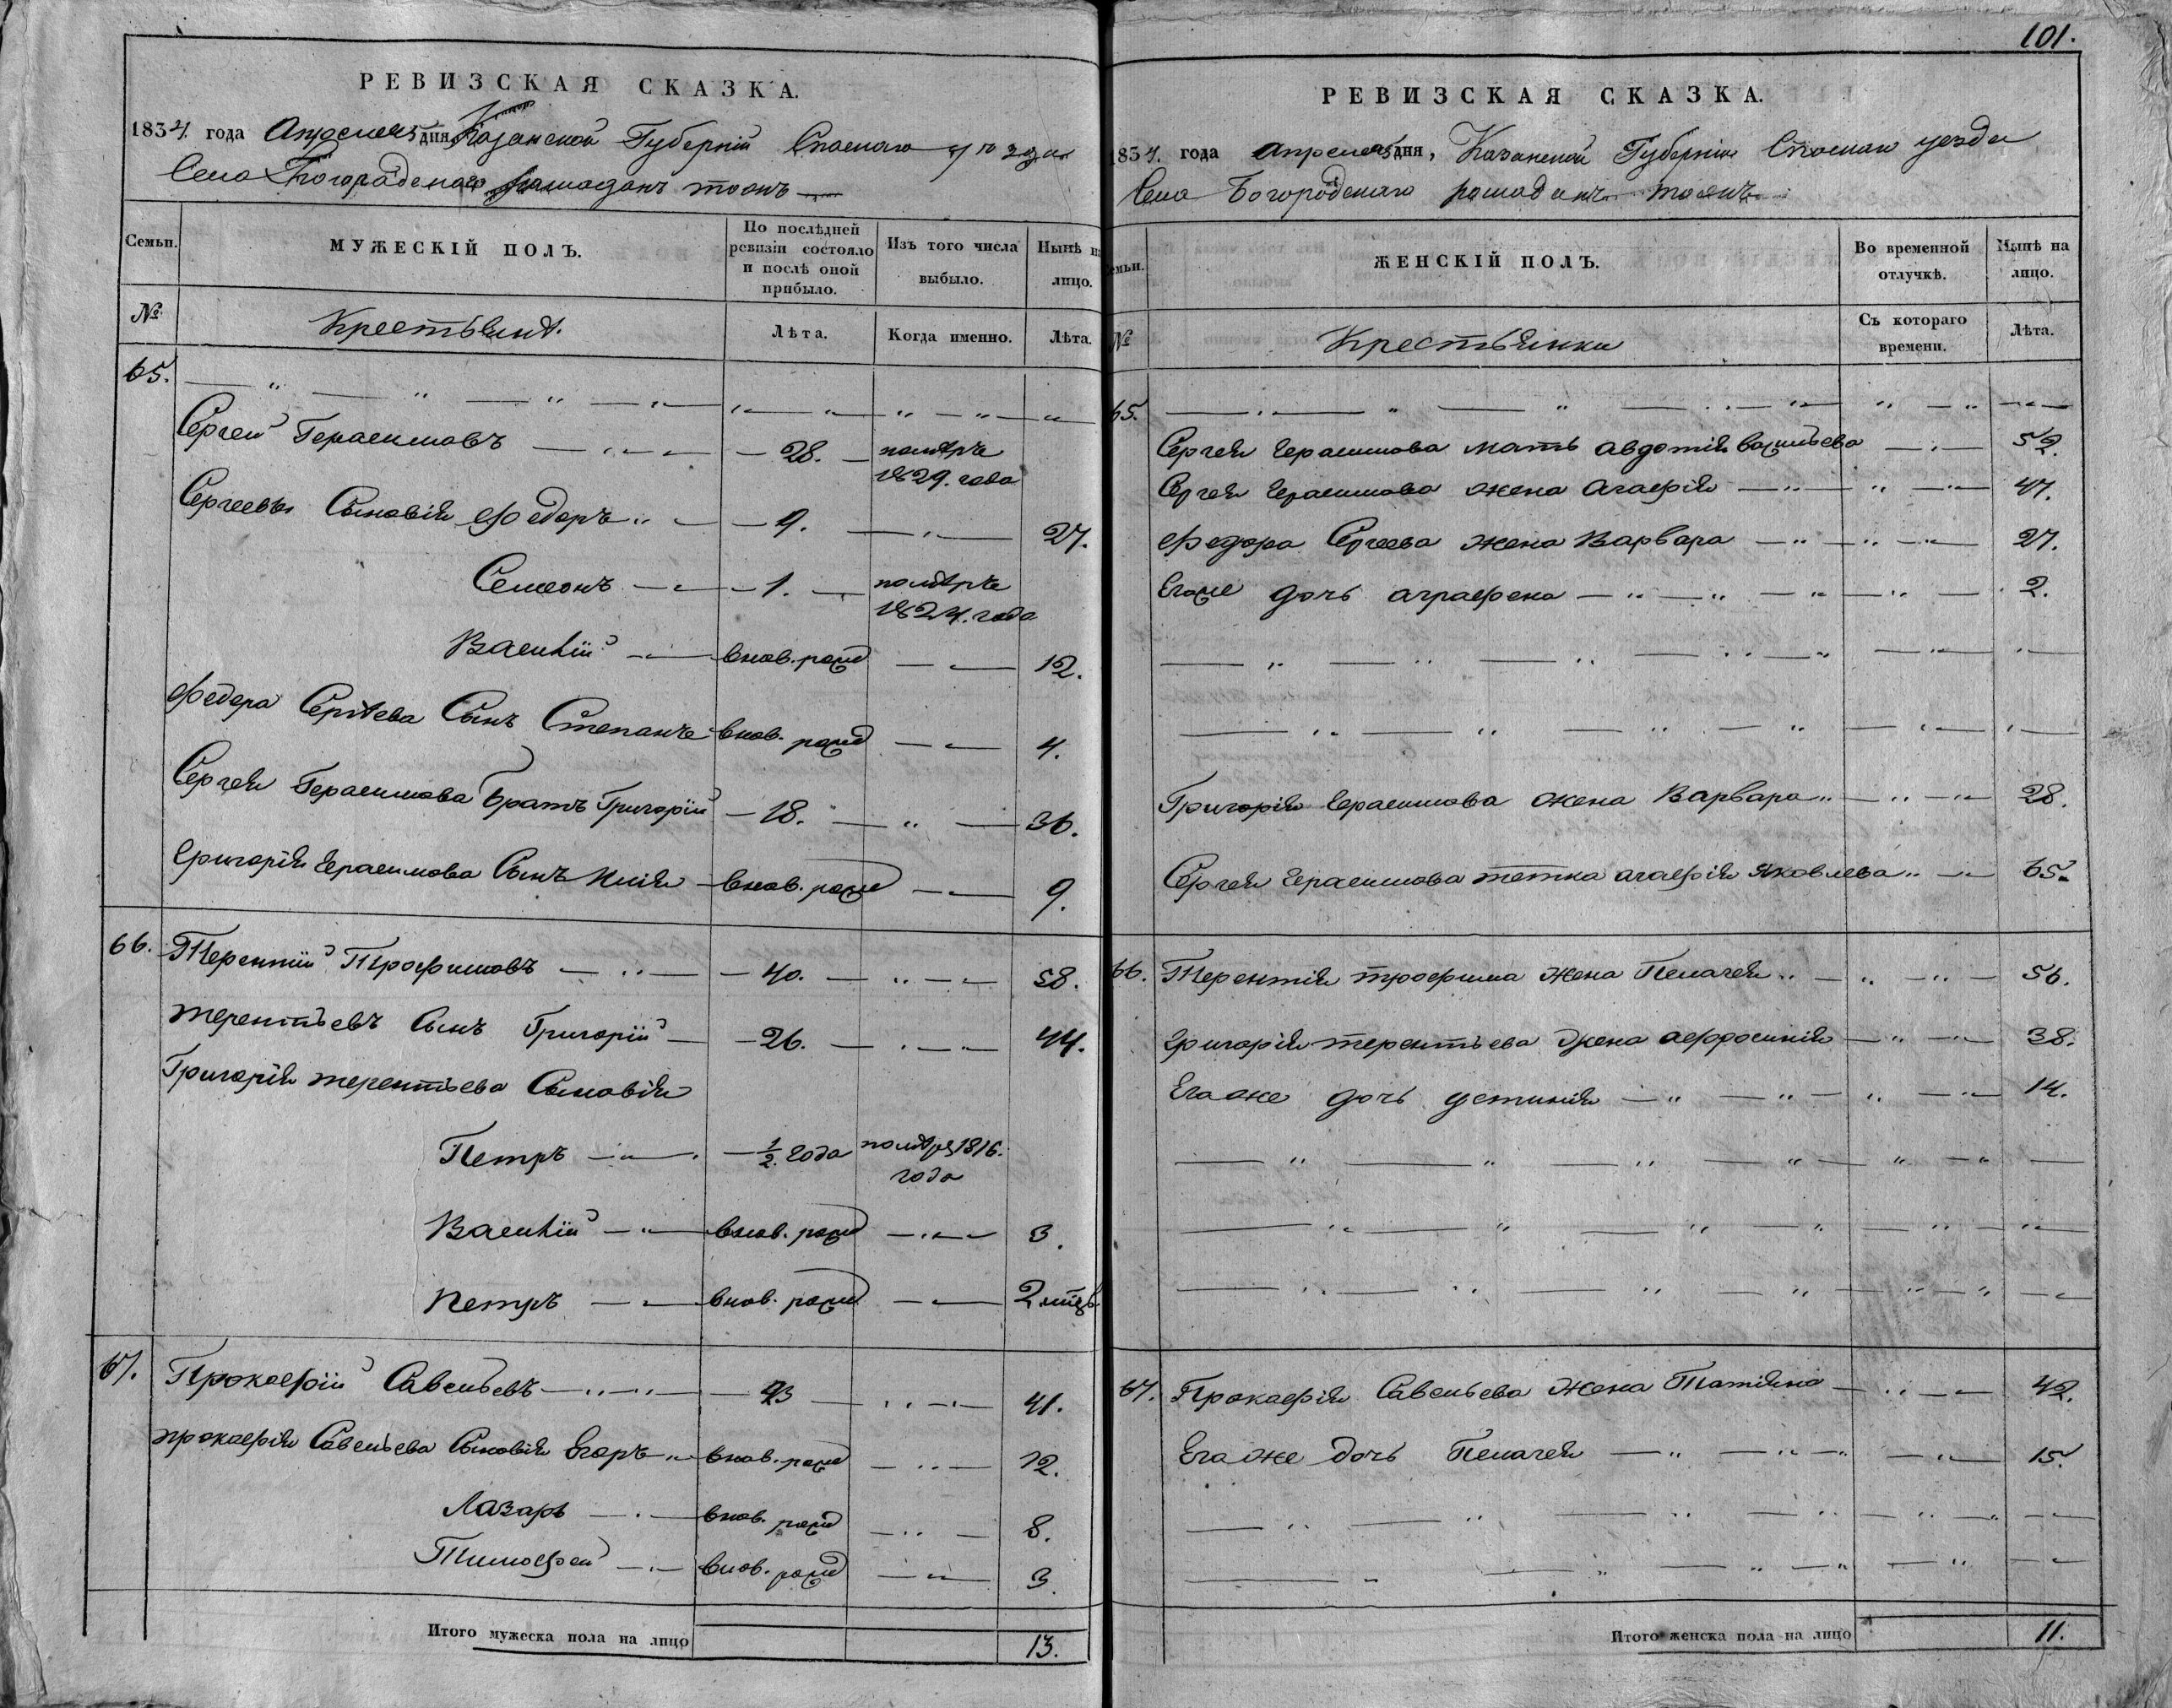 РЕВИЗСКАЯ СКАЗКА.
1834. года Апреля дня, Казанской Губернiй Спаскаго уезда
Села Богородскаго рамаданъ тожъ
Семьи.
МУЖЕСКIЙ ПОЛЪ.
По послѣдней ревизiи состояло и послѣ оной прибыло.
Изъ того числа выбыло.
Нынѣ на лицо.
№
Крестьяня.
Лѣта.
Когда именно.
Лѣта.
65.
Сергей Герасимовъ 28. помѣръ 1829. года
Сергеевы Сыновiя Федоръ 9. 27.
Семеонъ 1. помѣръ 1824. года
Василiй внов. рожд 12.
Федора Сергѣева Сынъ Степанъ внов. рожд 4.
Сергея Герасимова братъ Григорiй 18. 36.
Григорiя Герасимова Сынъ Илiя внов. рожд 9.
66. Терентiй Трофимовъ 40. 58.
терентьевъ Сынъ Григорiй 26. 44.
Григорiя терентьева Сыновiя
Петръ ½ года помѣр 1816. года
Василiй внов. рожд 3.
Петръ внов. рожд 2 мѣц
67. Прокофiй Савельевъ 23 41.
прокофiя Савельева Сыновiя Егоръ внов. рожд 12.
Лазарь внов. рожд 8.
Тимофей внов. рожд 3.
Итого мужеска пола на лицо 13.
101.
РЕВИЗСКАЯ СКАЗКА.
1834. года апреля дня, Казанской Губернiи Спаскаго уезда
Села Богородскаго рамаданъ тожъ
Семьи.
ЖЕНСКIЙ ПОЛЪ.
Во временной отлучкѣ.
Нынѣ на лицо.
№
Крестьянки
Съ котораго времени.
Лѣта.
65.
Сергея Герасимова мать авдотiя васильева 52.
Сергея Герасимова жена Агафiя 47.
Федора Сергеева жена Варвара 27.
Егоже дочь аграфена 2.
Григорiя Герасимова жена Варвара 28.
Сергея Герасимова тетка агафiя Яковлева 65.
66. Терентiя трофима жена Пелагея 56.
Григорiя терентьева жена афросинiя 38.
Егоже дочь устинiя 14.
67. Прокофiя Савельева жена Татiяна 42.
Егоже дочь Пелагея 15.
Итого женска пола на лицо 11.